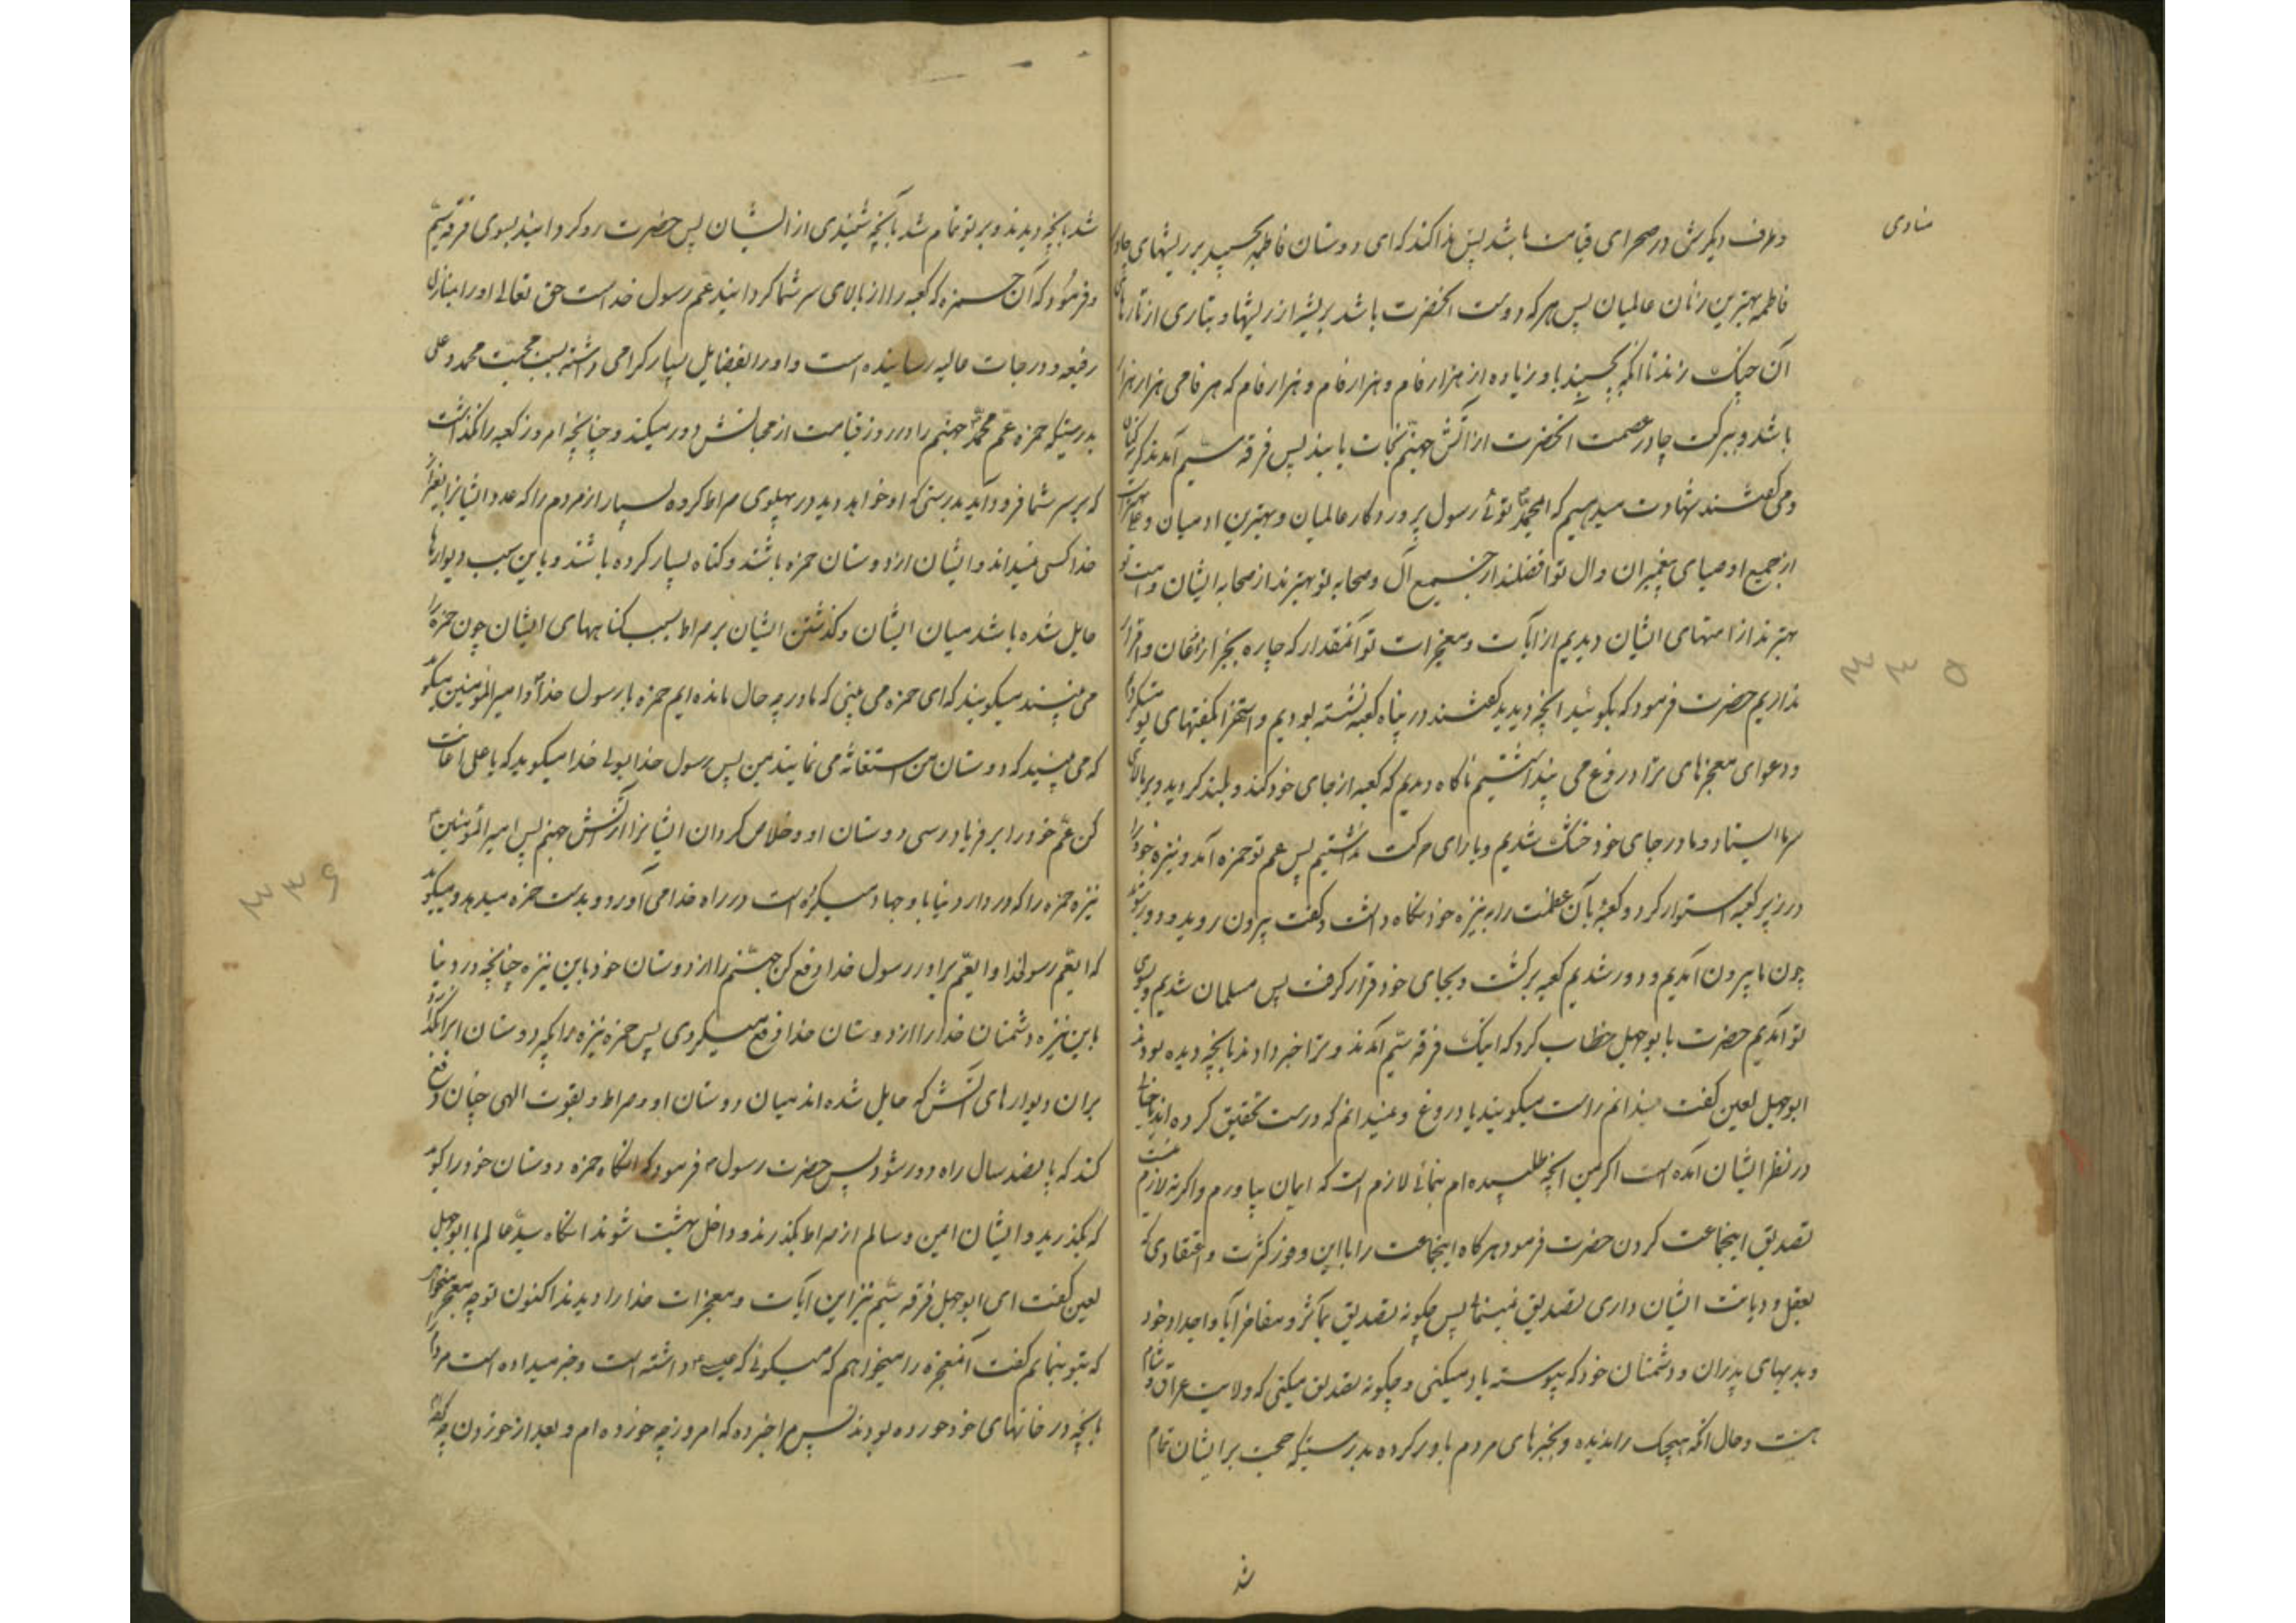 منادی
و طرف دیگرش در صحرای قیامت باشد پس ندا کند که ای دوستان فاطمه بچسپید بر ریشهای چادر
فاطمه بهترین زنان عالمیان پس هر که دوست آنحضرت باشد بریشه از ریشها و بتاری از تارهای
آن چنگ زند تا آنکه بچسپند باو زیاده از هزار فام و هزار فام و هزار فام که هر فامی هزار هزار
باشد و ببرکت چادر عصمت آنحضرت از آتش جهنم نجات یابند پس فرقه سیم آمدند گریه کنان
و می گفتند شهادت میدهیم که ای محمد توئی رسول پروردگار عالمیان و بهترین ادمیان و علی بهتر است
از جمیع اوصیای پیغمبران و ال تو افضلند از جمیع آل و صحابه تو بهترند از صحابه ایشان و امت تو
بهترند از امتهای ایشان دیدیم از آیات و معجزات تو آنمقدار که چاره بجز اذعان و اقرار
نداریم حضرت فرمود که بگوئید آنچه دیدید گفتند در پناه کعبه نشسته بودیم و استهزا بگفتهای تو میکردیم
و دعوای معجزهای ترا دروغ می پنداشتیم ناگاه دیدیم که کعبه از جای خود کنده و بلند گردید و بر بالای
سر ما ایستاد و ما در جای خود خشک شدیم و یارای حرکت نداشتیم پس عم تو حمزه آمد و نیزه خود را
در زیر کعبه استوار کرد و کعبه بآن عظمت را به نیزه خود نگاه داشت و گفت بیرون روید و دور شوید
چون ما بیرون آمدیم و دور شدیم کعبه برگشت و بجای خود قرار گرفت پس مسلمان شدیم و بسوی
تو آمدیم حضرت با بوجهل خطاب کرد که اینک فرقه سیم آمدند و ترا خبر دادند بآنچه دیده بودند
ابوجهل لعین گفت نمیدانم راست میگویند یا دروغ و نمیدانم که درست تحقیق کرده اند یا خیالی
در نظر ایشان آمده است اگر من آنچه طلبیده ام بنمائی لازم است که ایمان بیاورم و اگر نه لازم نیست
تصدیق اینجماعت کردن حضرت فرمود هر گاه اینجماعت را با این وفور کثرت و اعتقادی که
بعقل و دیانت ایشان داری تصدیق نمینمائی پس چگونه تصدیق بمآثر و مفاخر آبا و اجداد خود
و بدیهای پدران و دشمنان خود که پیوسته یاد میکنی و چگونه تصدیق میکنی که ولایت عراق و شام
هست و حال آنکه هیچیک را ندیده و بخبرهای مردم باور کرده بدرستیکه حجت بر ایشان تمام
شد
۳۳۵
شد بآنچه دیدند و بر تو تمام شد بآنچه شنیدی از ایشان پس حضرت رو گردانید بسوی فرقه سیم
و فرمود که آن حمزه که کعبه را از بالای سر شما گردانید عم رسول خداست حق تعالی او را بمنازل
رفیعه و درجات عالیه رسانیده است و او را بفضایل بسیار گرامی داشته بسبب محبت محمد و علی
بدرستیکه حمزه عم محمد جهنم را در روز قیامت از محبانش دور میکند و چنانچه امروز کعبه را نگذاشت
که بر سر شما فرود آید بدرستی که او خواهد دید در پهلوی صراط گروه بسیار از مردم را که عدد ایشانرا بغیر از
خدا کسی نمیداند و ایشان از دوستان حمزه باشند و گناه بسیار کرده باشند و باین سبب دیوارها
حایل شده باشد میان ایشان و گذشتن ایشان بر صراط بسبب گناههای ایشان چون حمزه را
می بینند میگویند که ای حمزه می بینی که ما در چه حال مانده ایم حمزه با رسول خدا و امیر المومنین میگوید
که می بینید که دوستان من استغاثه می نمایند بمن پس رسول خدا بولی خدا میگوید که یا علی اعانت
کن عم خود را بر فریاد رسی دوستان او و خلاص کردان ایشانرا از آتش جهنم پس امیر المومنین
نیزه حمزه را که در دار دنیا با او جهاد میکرد در راه خدا می آورد و بدست حمزه میدهد و میگوید
که ایعم رسولخدا و ایعم برادر رسول خدا دفع کن جهنم را از دوستان خود باین نیزه چنانچه در دنیا
باین نیزه دشمنان خدا را از دوستان خدا دفع میکردی پس حمزه نیزه را بگیرد و سنان انرا بگذارد
بران دیوارهای آتش که حایل شده اند میان دوستان او و صراط و بقوت الهی چنان دفع
کند که پانصد سال راه دور شود پس حضرت رسول فرمود که انگاه حمزه دوستان خود را گوید
که بگذرید و ایشان امین و سالم از صراط بگذرند و داخل بهشت شوند انگاه سید عالم با ابوجهل
لعین گفت ای ابوجهل فرقه سیم نیز این آیات و معجزات خدا را دیدند اکنون تو چه معجزه میخواهی
که بتو بنمایم گفت آنمعجزه را میخواهم که میگوئی که عیسی داشته است و خبر میداده است مردم را
بآنچه در خانهای خود خورده بودند پس مرا خبر ده که امروز چه خورده ام و بعد از خوردن چه کرده
۳۳۶